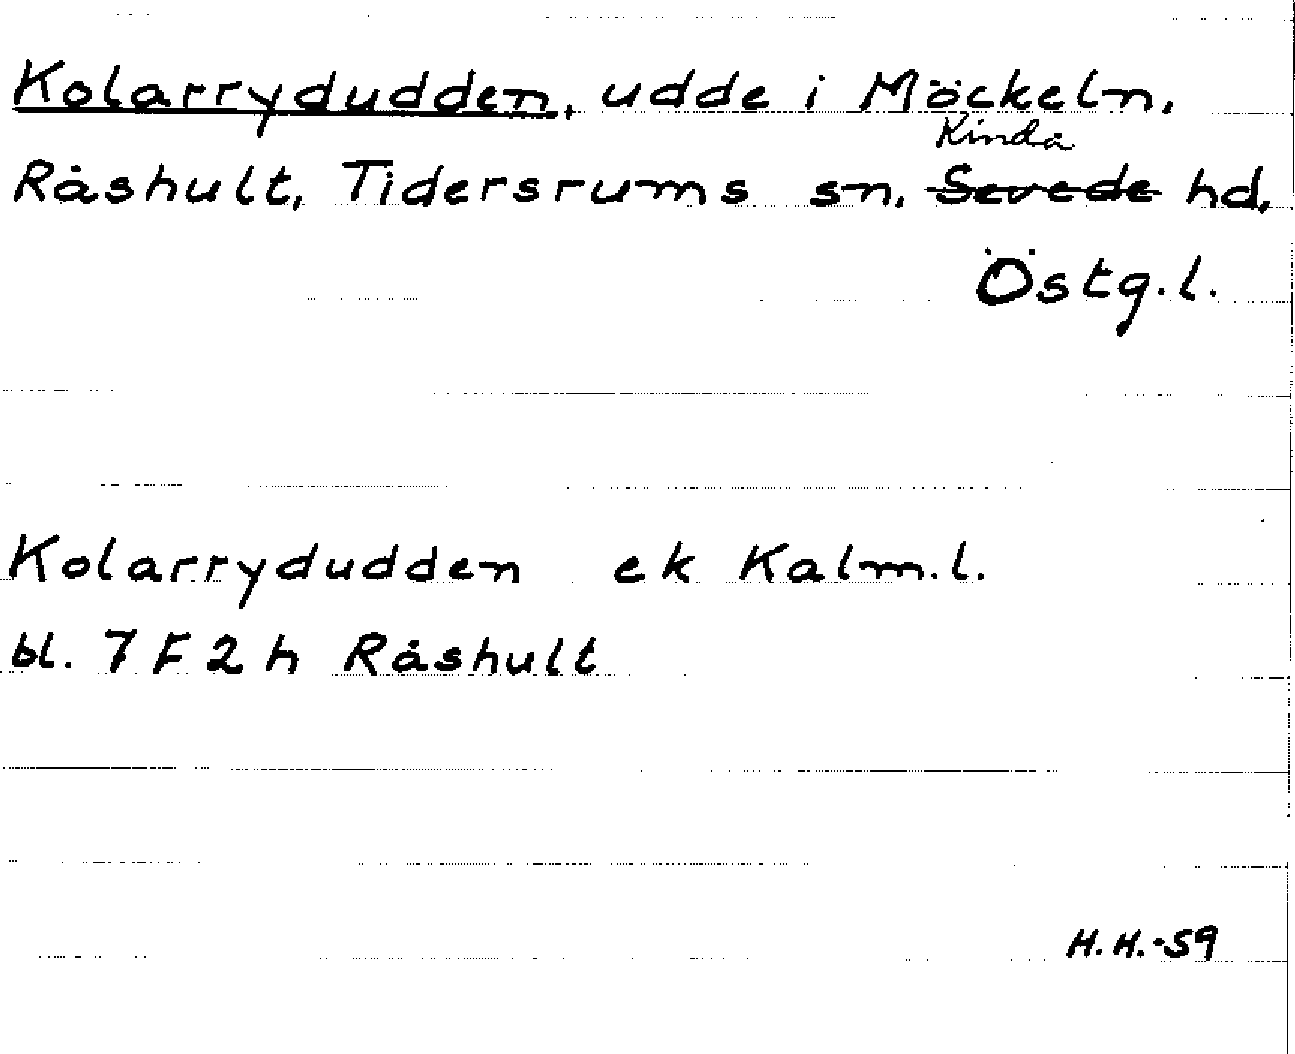 Kolarrydudden, udde i Möckeln,
Råshult, Tidersrums sn, Kinda Sevede hd,
Östg.l.
Kolarrydudden ek Kalm.l.
bl. 7F2h Råshult
H.H.-59